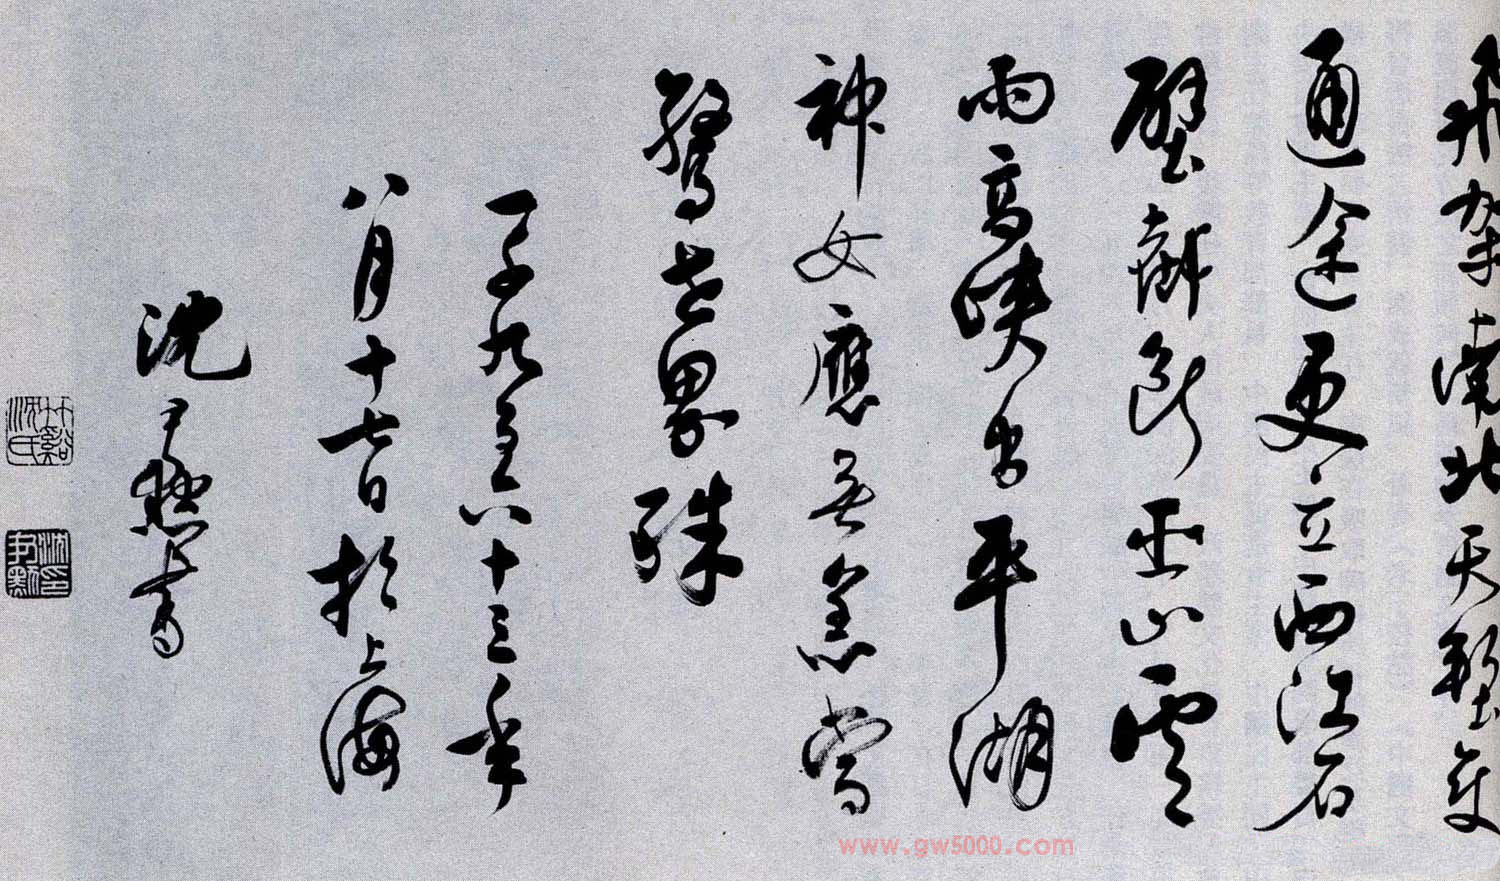 飛架南北天塹變
通途更立西江石
壁截斷巫山雲
雨高峽出平湖
神女應無恙當
驚世界殊
一千九百六十三年
八月十七日於上海
沈尹默書
竹谿沈氏
沈尹默印
www.gw5000.com